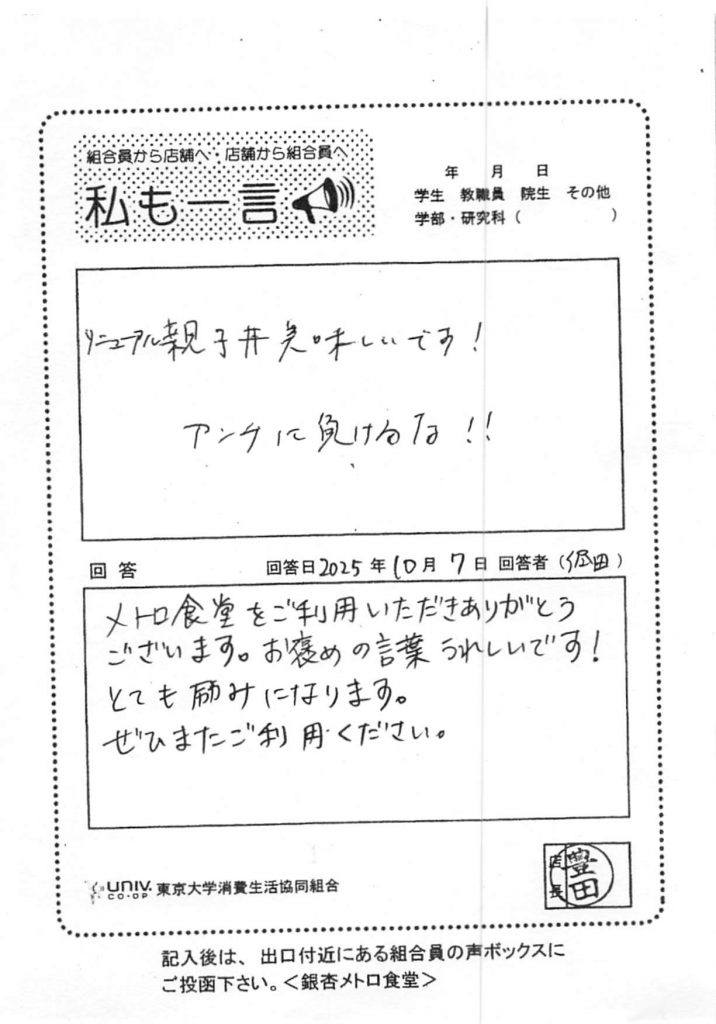 組合員から店舗へ・店舗から組合員へ
私も一言
年 月 日
学生 教職員 院生 その他
学部・研究科（ ）
リニューアル親子丼美味しいです！
アンチに負けるな！！
回答 回答日2025年10月7日 回答者（ 田）
メトロ食堂をご利用いただきありがとう
ございます。お褒めの言葉うれしいです！
とても励みになります。
ぜひまたご利用ください。
UNIV. CO-OP 東京大学消費生活協同組合
店長 豊田
記入後は、出口付近にある組合員の声ボックスに
ご投函下さい。＜銀杏メトロ食堂＞